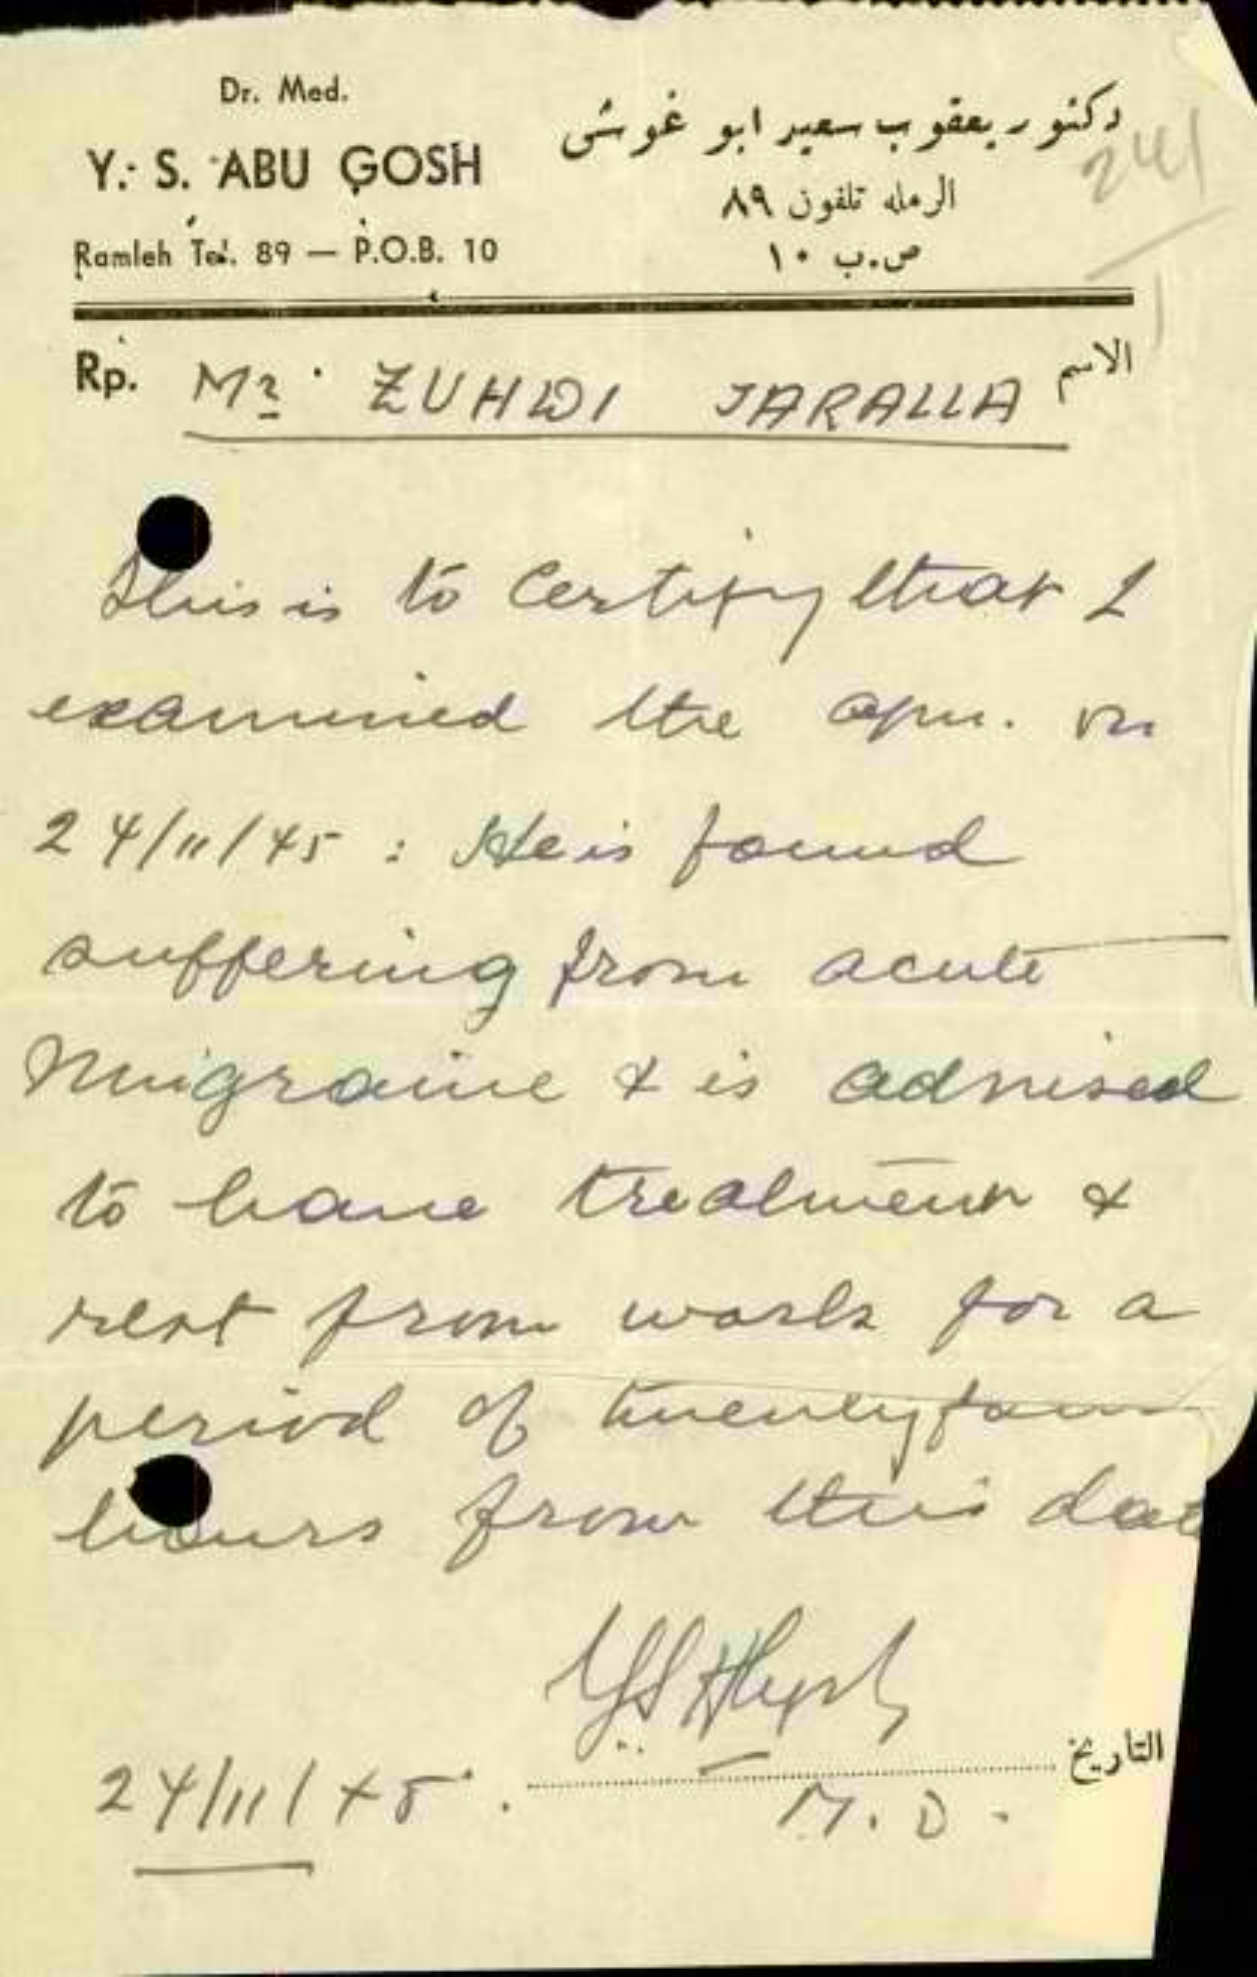 Dr. Med.
Y. S. ABU GOSH
Ramleh Tel. 89 — P.O.B. 10
دكتور يعقوب سعيد ابو غوش
الرمله تلفون ٨٩
ص.ب ١٠
241
1
Rp. Mr. ZUHDI JARALLA الاسم
This is to certify that I
examined the apm. on
24/11/45 : He is found
suffering from acute
migraine & is advised
to have treatment &
rest from work for a
period of twenty four
hours from this dat
التاريخ
24/11/45.
M.D.